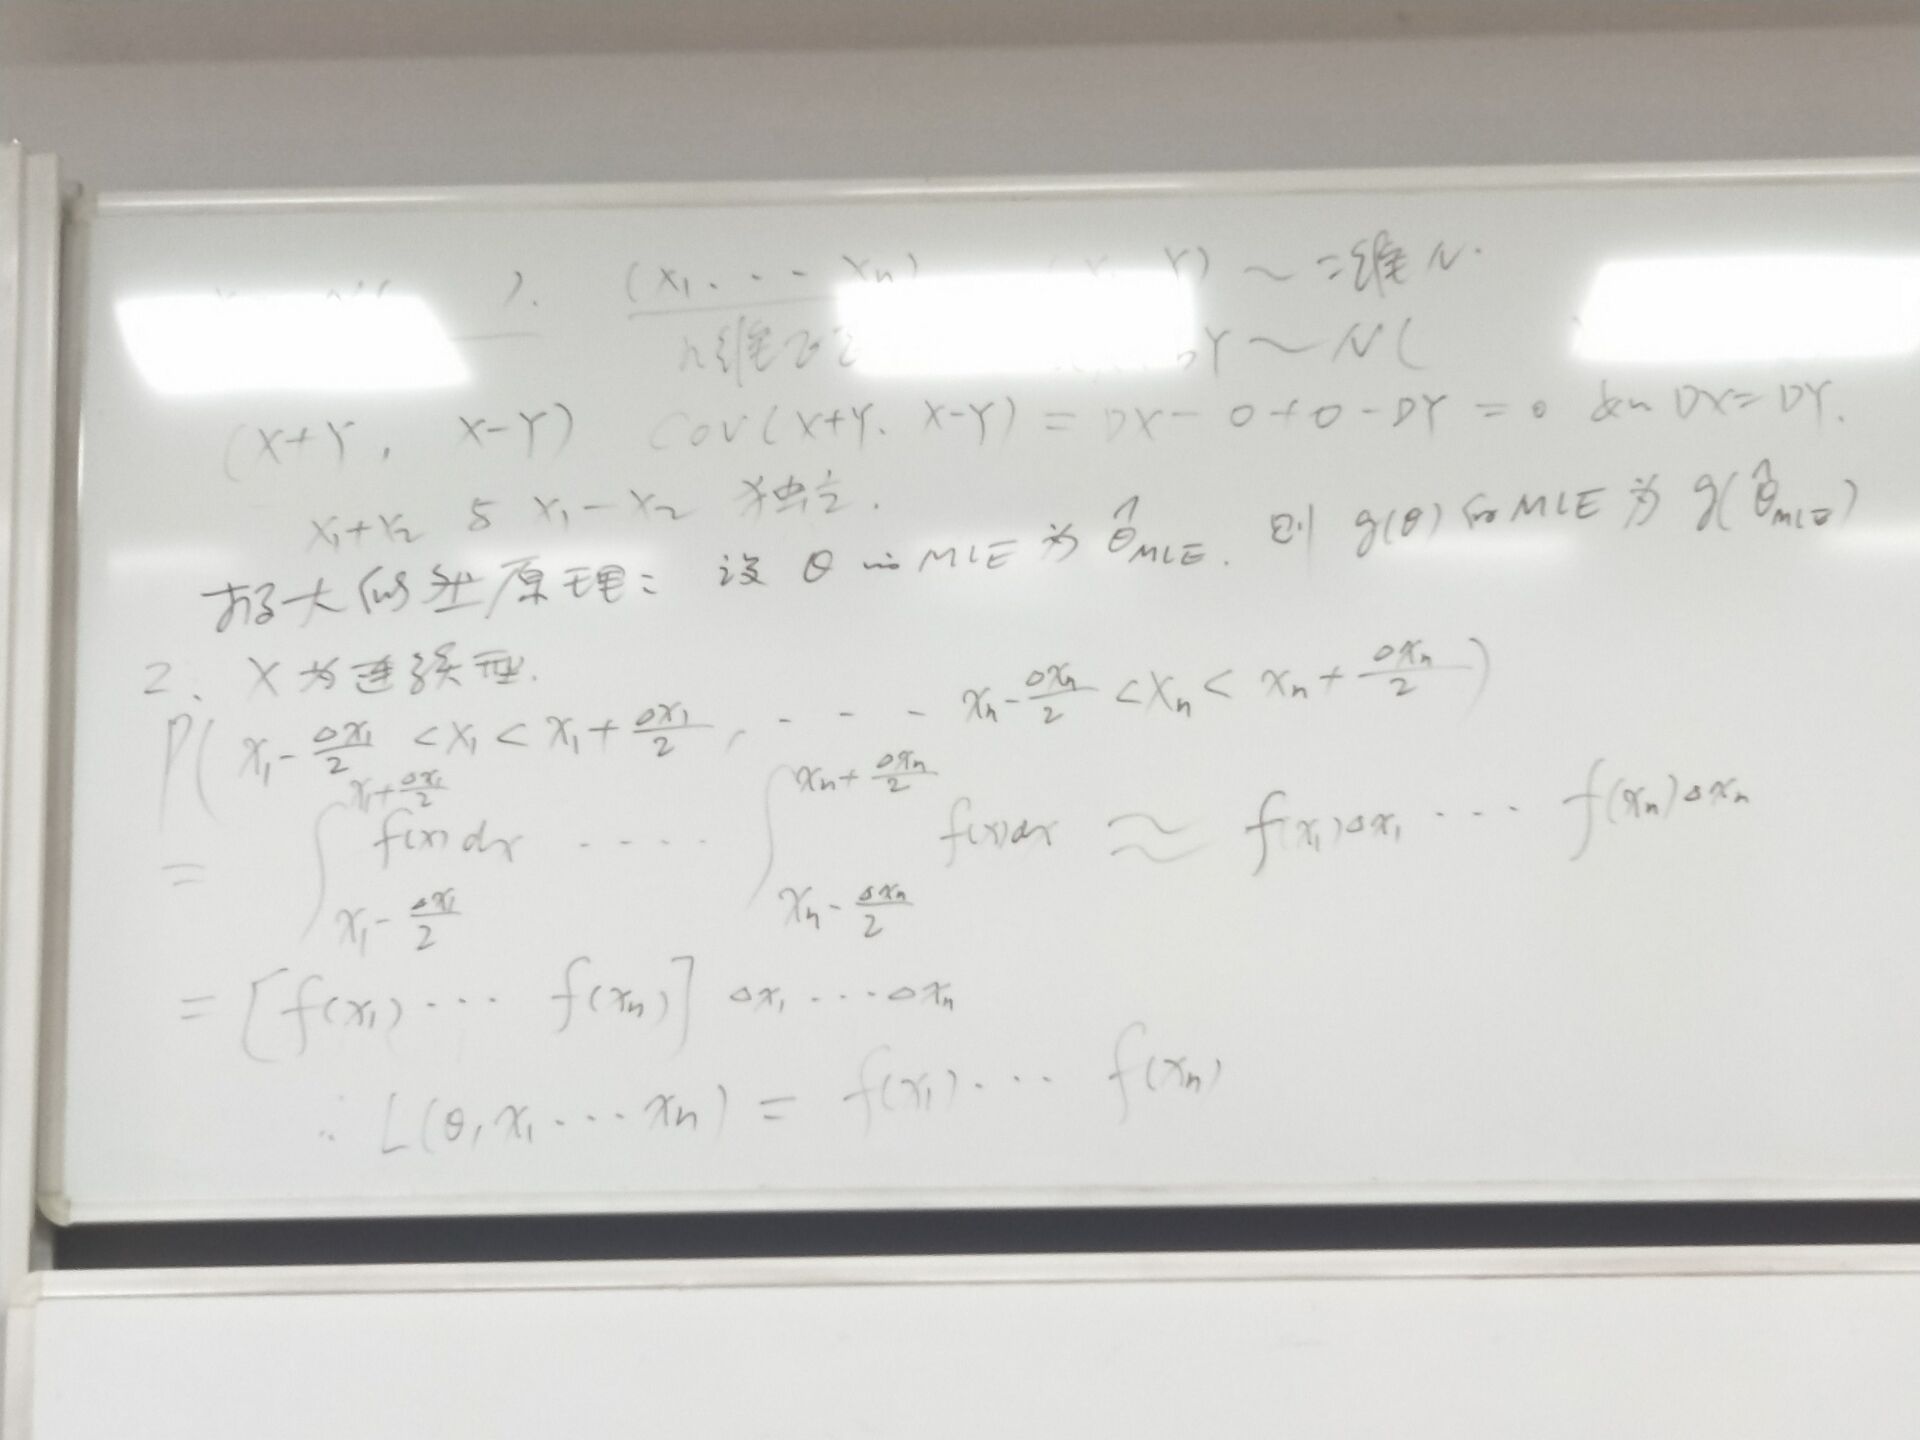 ). (X₁. . - Xₙ) Y) ~ 二维 N.
n维 Y ~ N(
(X+Y, X-Y) Cov(X+Y. X-Y) = DX - 0 + 0 - DY = 0 DX = DY.
X₁+X₂ 与 X₁-X₂ 独立.
极大似然原理: 设 θ 的 MLE 为 θ̂_MLE. 则 g(θ) 的 MLE 为 g(θ̂_MLE)
2、X为连续型.
P( x₁ - Δx₁/2 < X₁ < x₁ + Δx₁/2, - - - xₙ - Δxₙ/2 < Xₙ < xₙ + Δxₙ/2 )
= ∫_{x₁ - Δx₁/2}^{x₁ + Δx₁/2} f(x)dx .... ∫_{xₙ - Δxₙ/2}^{xₙ + Δxₙ/2} f(x)dx ≈ f(x₁)Δx₁ ... f(xₙ)Δxₙ
= [f(x₁) ... f(xₙ)] Δx₁ ... Δxₙ
∴ L(θ, x₁ ... xₙ) = f(x₁) ... f(xₙ)